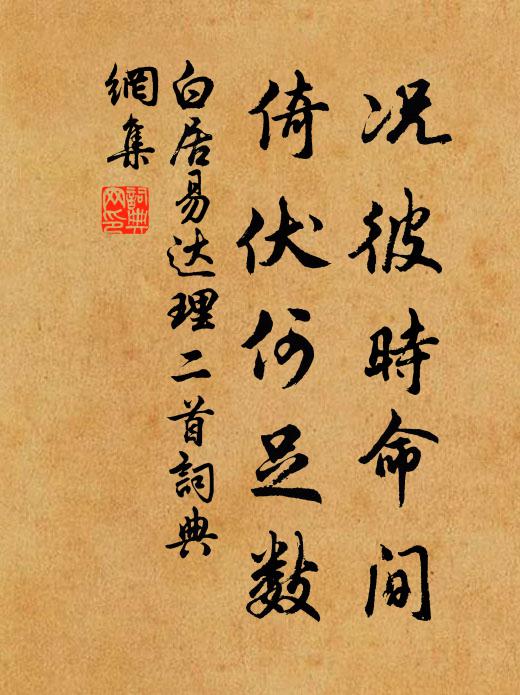 况彼時命间
倚伏何足数
白居易达理二首詞典
網集
詞典网印